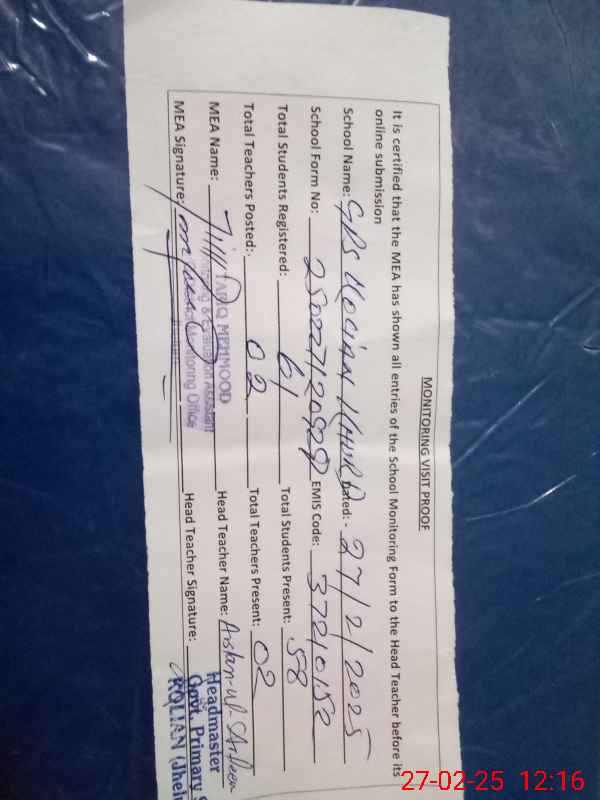 MONITORING VISIT PROOF
It is certified that the MEA has shown all entries of the School Monitoring Form to the Head Teacher before its
online submission
School Name: GPS Dated:- 27/2/2025
School Form No: EMIS Code: 37210152
Total Students Registered: 61 Total Students Present: 58
Total Teachers Posted:- 02 Total Teachers Present: 02
MEA Name: Head Teacher Name:
TARIQ MEHMOOD
Monitoring & Evaluation Assistant
Monitoring Office
MEA Signature: Head Teacher Signature:
Headmaster
Govt. Primary S
27-02-25 12:16